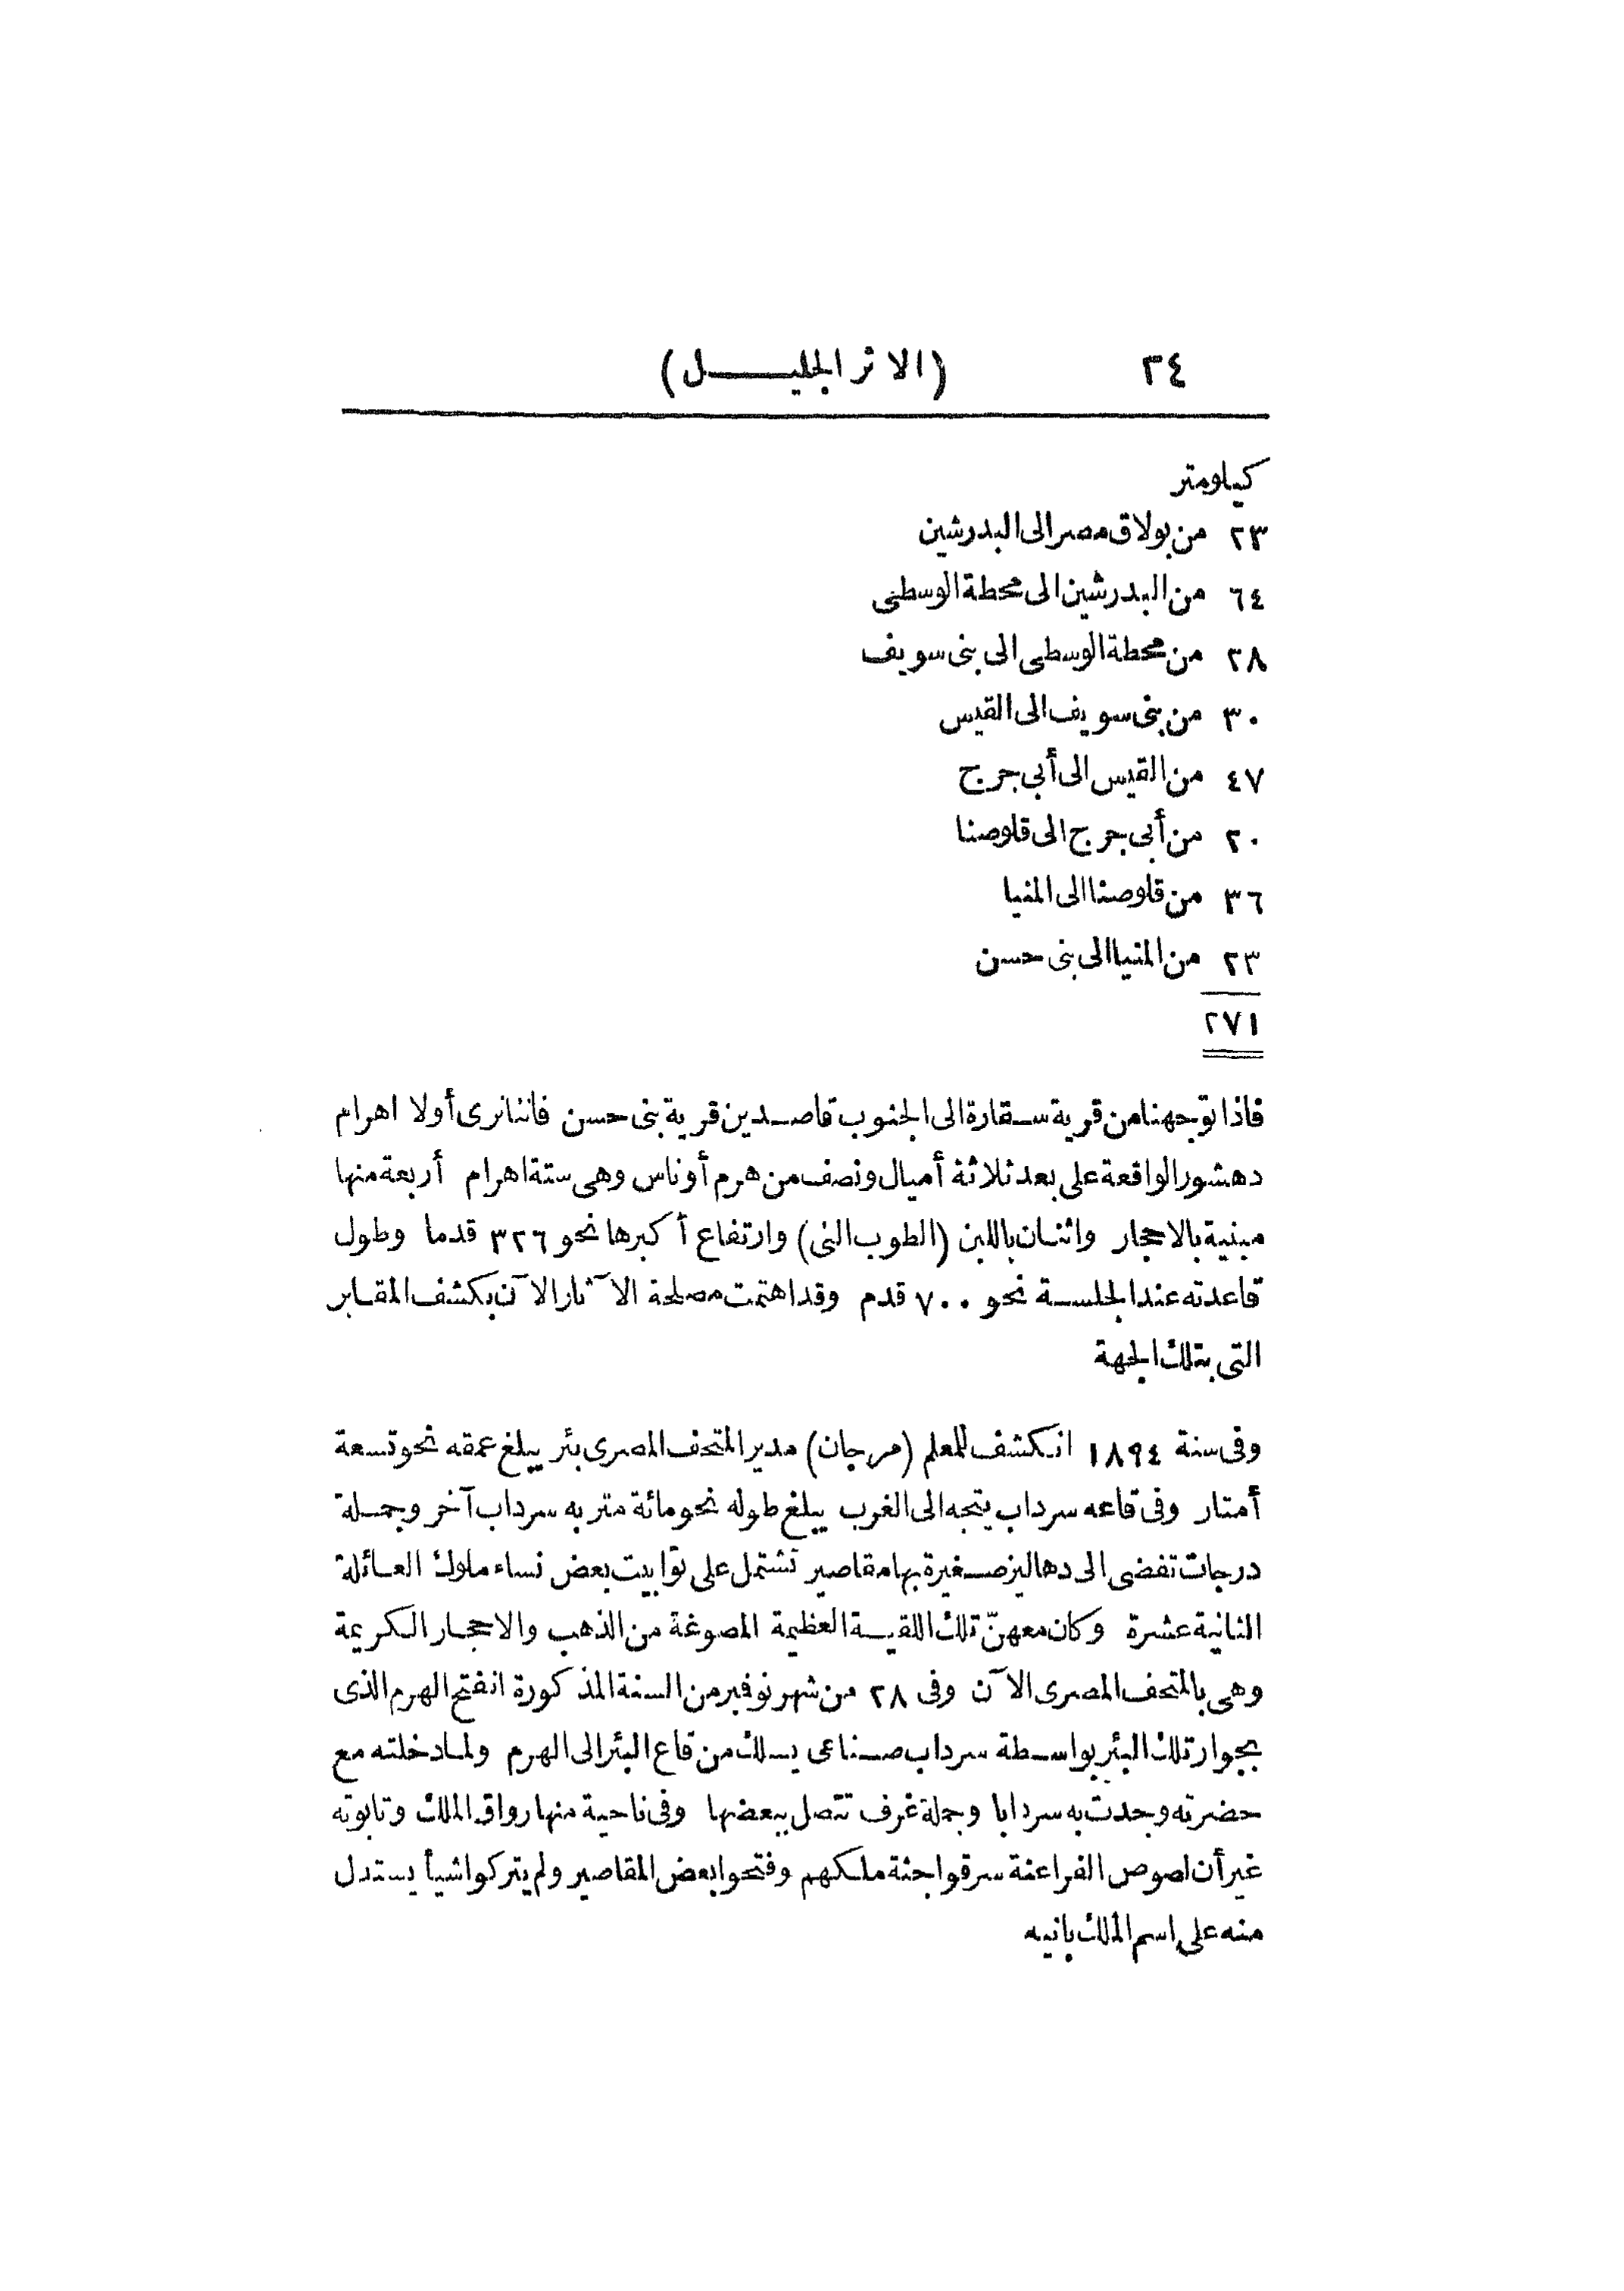 ٢٤ (الاثر الجليــل)
كيلومتر
٢٣ من بولاق مصر الى البدرشين
٦٤ من البدرشين الى محطة الوسطى
٢٨ من محطة الوسطى الى بنى سويف
٣٠ من بنى سويف الى القيس
٤٧ من القيس الى أبى جرج
٢٠ من أبى جرج الى قلوصنا
٣٦ من قلوصنا الى المنيا
٢٣ من المنيا الى بنى حسن
٢٧١
فاذا توجهنا من قرية سقارة الى الجنوب قاصدين قرية بنى حسن فاننا نرى أولا اهرام
دهشور الواقعة على بعد ثلاثة أميال ونصف من هرم أوناس وهى ستة اهرام أربعة منها
مبنية بالاحجار واثنان باللبن (الطوب النى) وارتفاع أكبرها نحو ٣٢٦ قدما وطول
قاعدته عند الجلسة نحو ٧٠٠ قدم وقد اهتمت مصلحة الآثار الآن بكشف المقابر
التى بتلك الجهة
وفى سنة ١٨٩٤ انكشف للمعلم (مرجان) مدير المتحف المصرى بئر يبلغ عمقه نحو تسعة
أمتار وفى قاعه سرداب يتجه الى الغرب يبلغ طوله نحو مائة متر به سرداب آخر وجملة
درجات تفضى الى دهاليز صغيرة بها مقاصير تشتمل على توابيت بعض نساء ملوك العائلة
الثانية عشرة وكان معهنّ تلك اللقية العظيمة المصوغة من الذهب والاحجار الكريمة
وهى بالمتحف المصرى الآن وفى ٢٨ من شهر نوفمبر من السنة المذكورة انفتح الهرم الذى
بجوار تلك البئر بواسطة سرداب صناعى يسلك من قاع البئر الى الهرم ولما دخلته مع
حضرته وجدت به سردابا وجملة غرف تتصل ببعضها وفى ناحية منها رواق الملك وتابوته
غير أن لصوص الفراعنة سرقوا جثة ملكهم وفتحوا بعض المقاصير ولم يتركوا شيأ يستدل
منه على اسم الملك بانيه